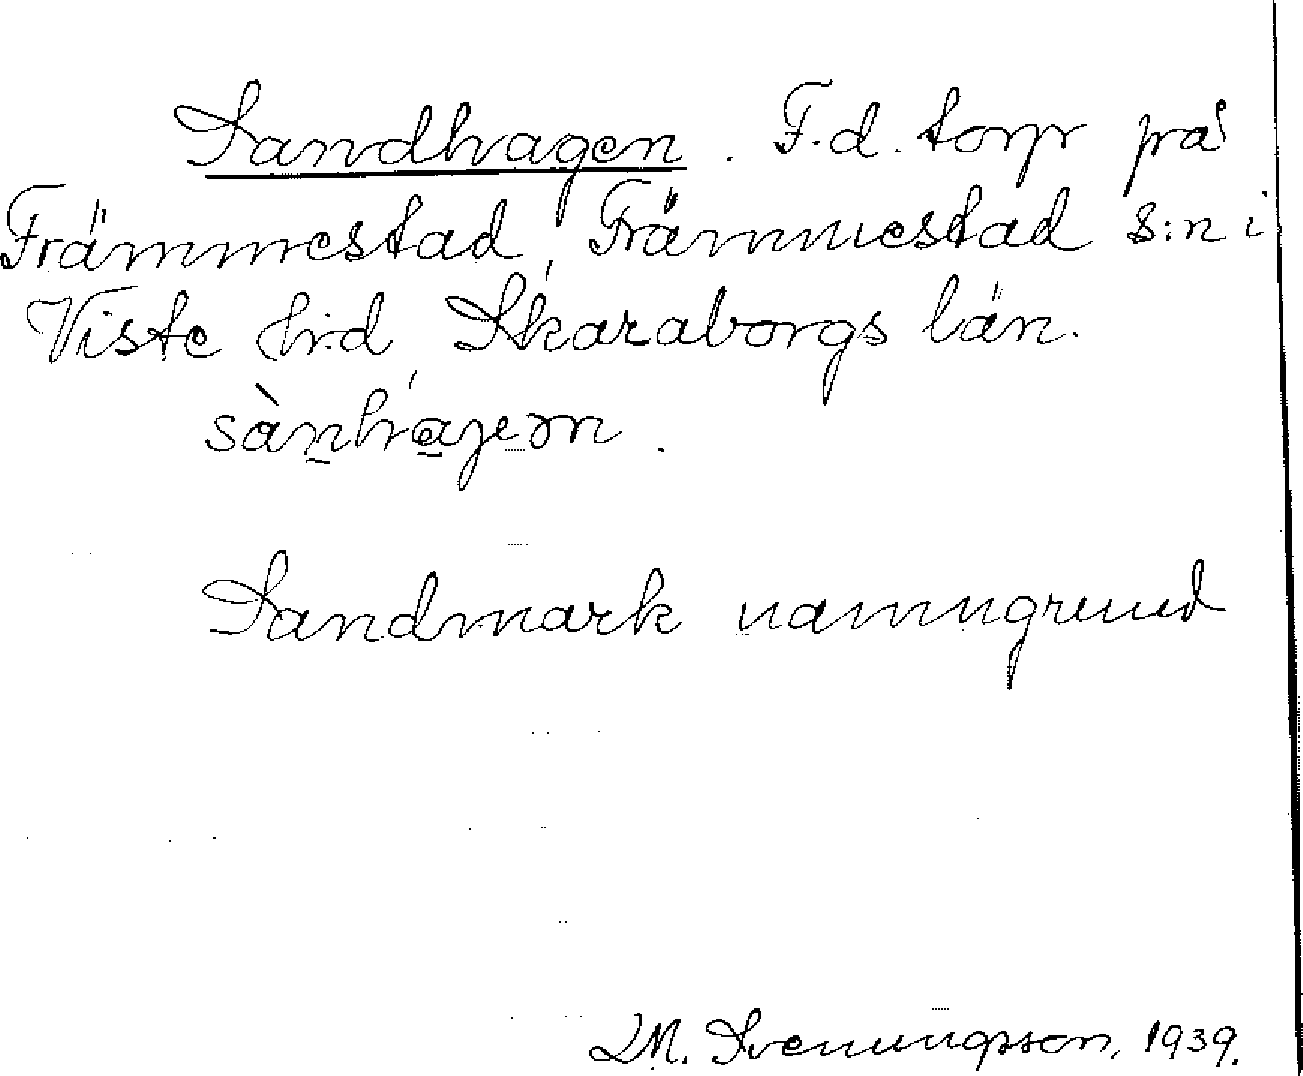 Sandhagen. F.d. torp på
Främmestad, Främmestad s:n i
Viste hd Skaraborgs län.
sànháɡen.
Sandmark namngrund
Svenungsson, 1939.